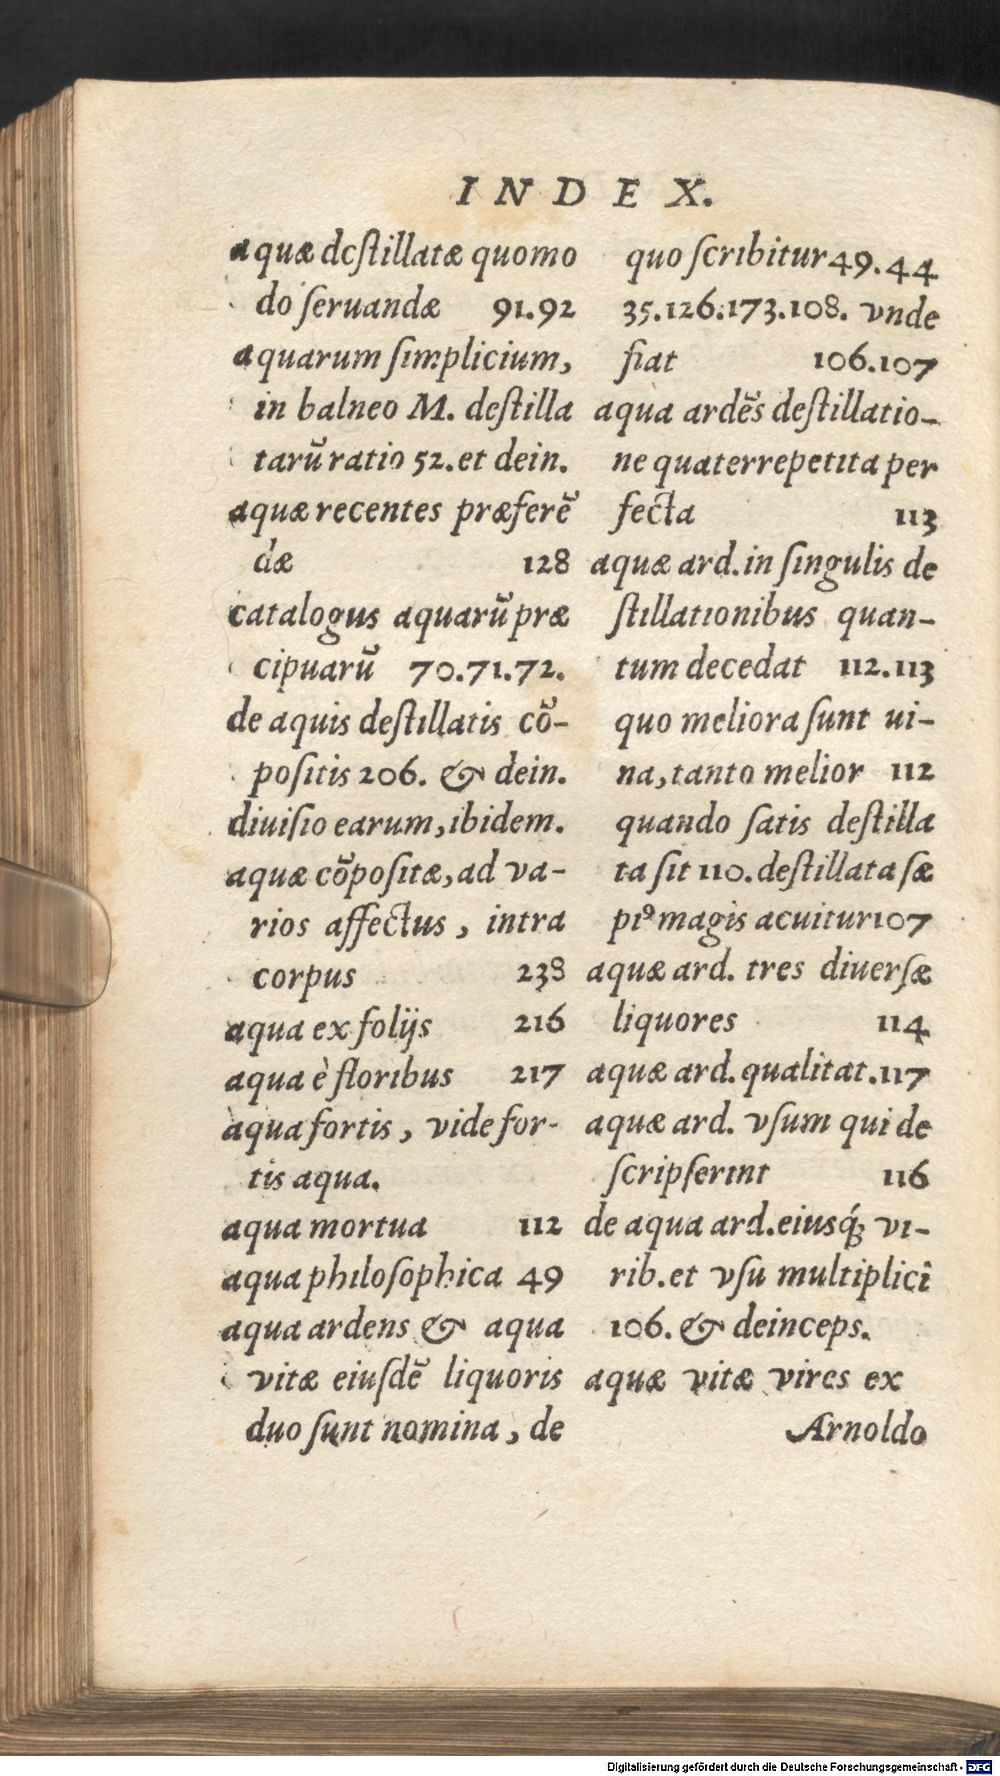 INDEX.
aquæ destillatæ quomo
do ſeruandæ 91.92
aquarum ſimplicium,
in balneo M. deſtilla
tarū ratio 52. et dein.
aquæ recentes præferē
dæ 128
catalogus aquarū præ
cipuarū 70.71.72.
de aquis deſtillatis cō-
poſitis 206. & dein.
diuiſio earum, ibidem.
aquæ cōpoſitæ, ad va-
rios affectus, intra
corpus 238
aqua ex folijs 216
aqua è floribus 217
aqua fortis, vide for-
tis aqua.
aqua mortua 112
aqua philoſophica 49
aqua ardens & aqua
vitæ eiuſdē liquoris
duo ſunt nomina, de
quo ſcribitur 49.44
35.126.173.108. vnde
fiat 106.107
aqua ardēs deſtillatio-
ne quater repetita per
fecta 113
aquæ ard. in ſingulis de
ſtillationibus quan-
tum decedat 112.113
quo meliora ſunt ui-
na, tanto melior 112
quando ſatis deſtilla
ta ſit 110. deſtillata ſæ
piꝰ magis acuitur 107
aquæ ard. tres diuerſæ
liquores 114
aquæ ard. qualitat. 117
aquæ ard. vſum qui de
ſcripſerint 116
de aqua ard. eiusq́ꝫ vi-
rib. et vſu multiplici
106. & deinceps.
aquæ vitæ vires ex
Arnoldo
Digitalisierung gefördert durch die Deutsche Forschungsgemeinschaft - DFG